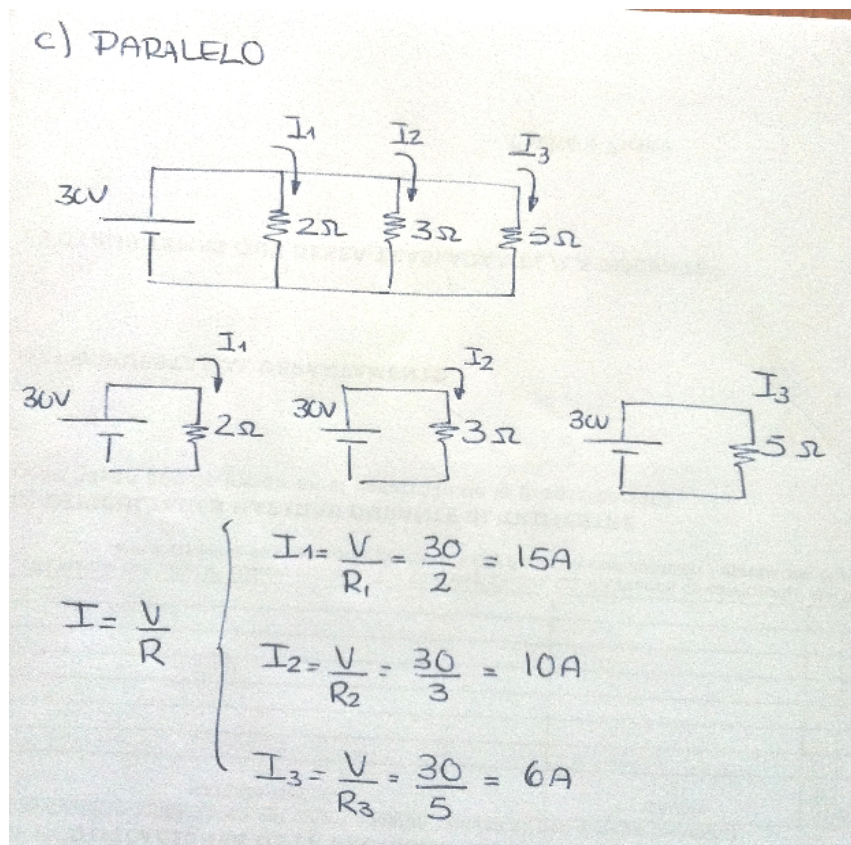 c) PARALELO
I1 I2 I3
30V 2Ω 3Ω 5Ω
I1 I2 I3
30V 2Ω 30V 3Ω 30V 5Ω
I1 = V/R1 = 30/2 = 15A
I = V/R
I2 = V/R2 = 30/3 = 10A
I3 = V/R3 = 30/5 = 6A